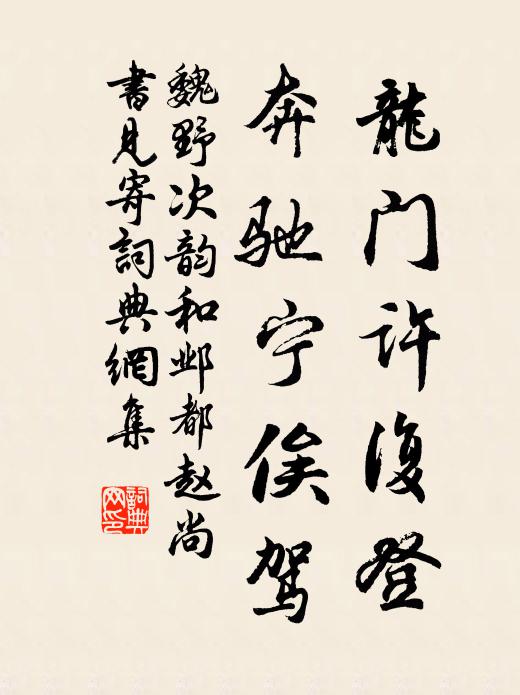 龍门许復登
奔驰宁俟驾
魏野次韵和邺都赵尚
書見寄詞典網集
詞典
网印